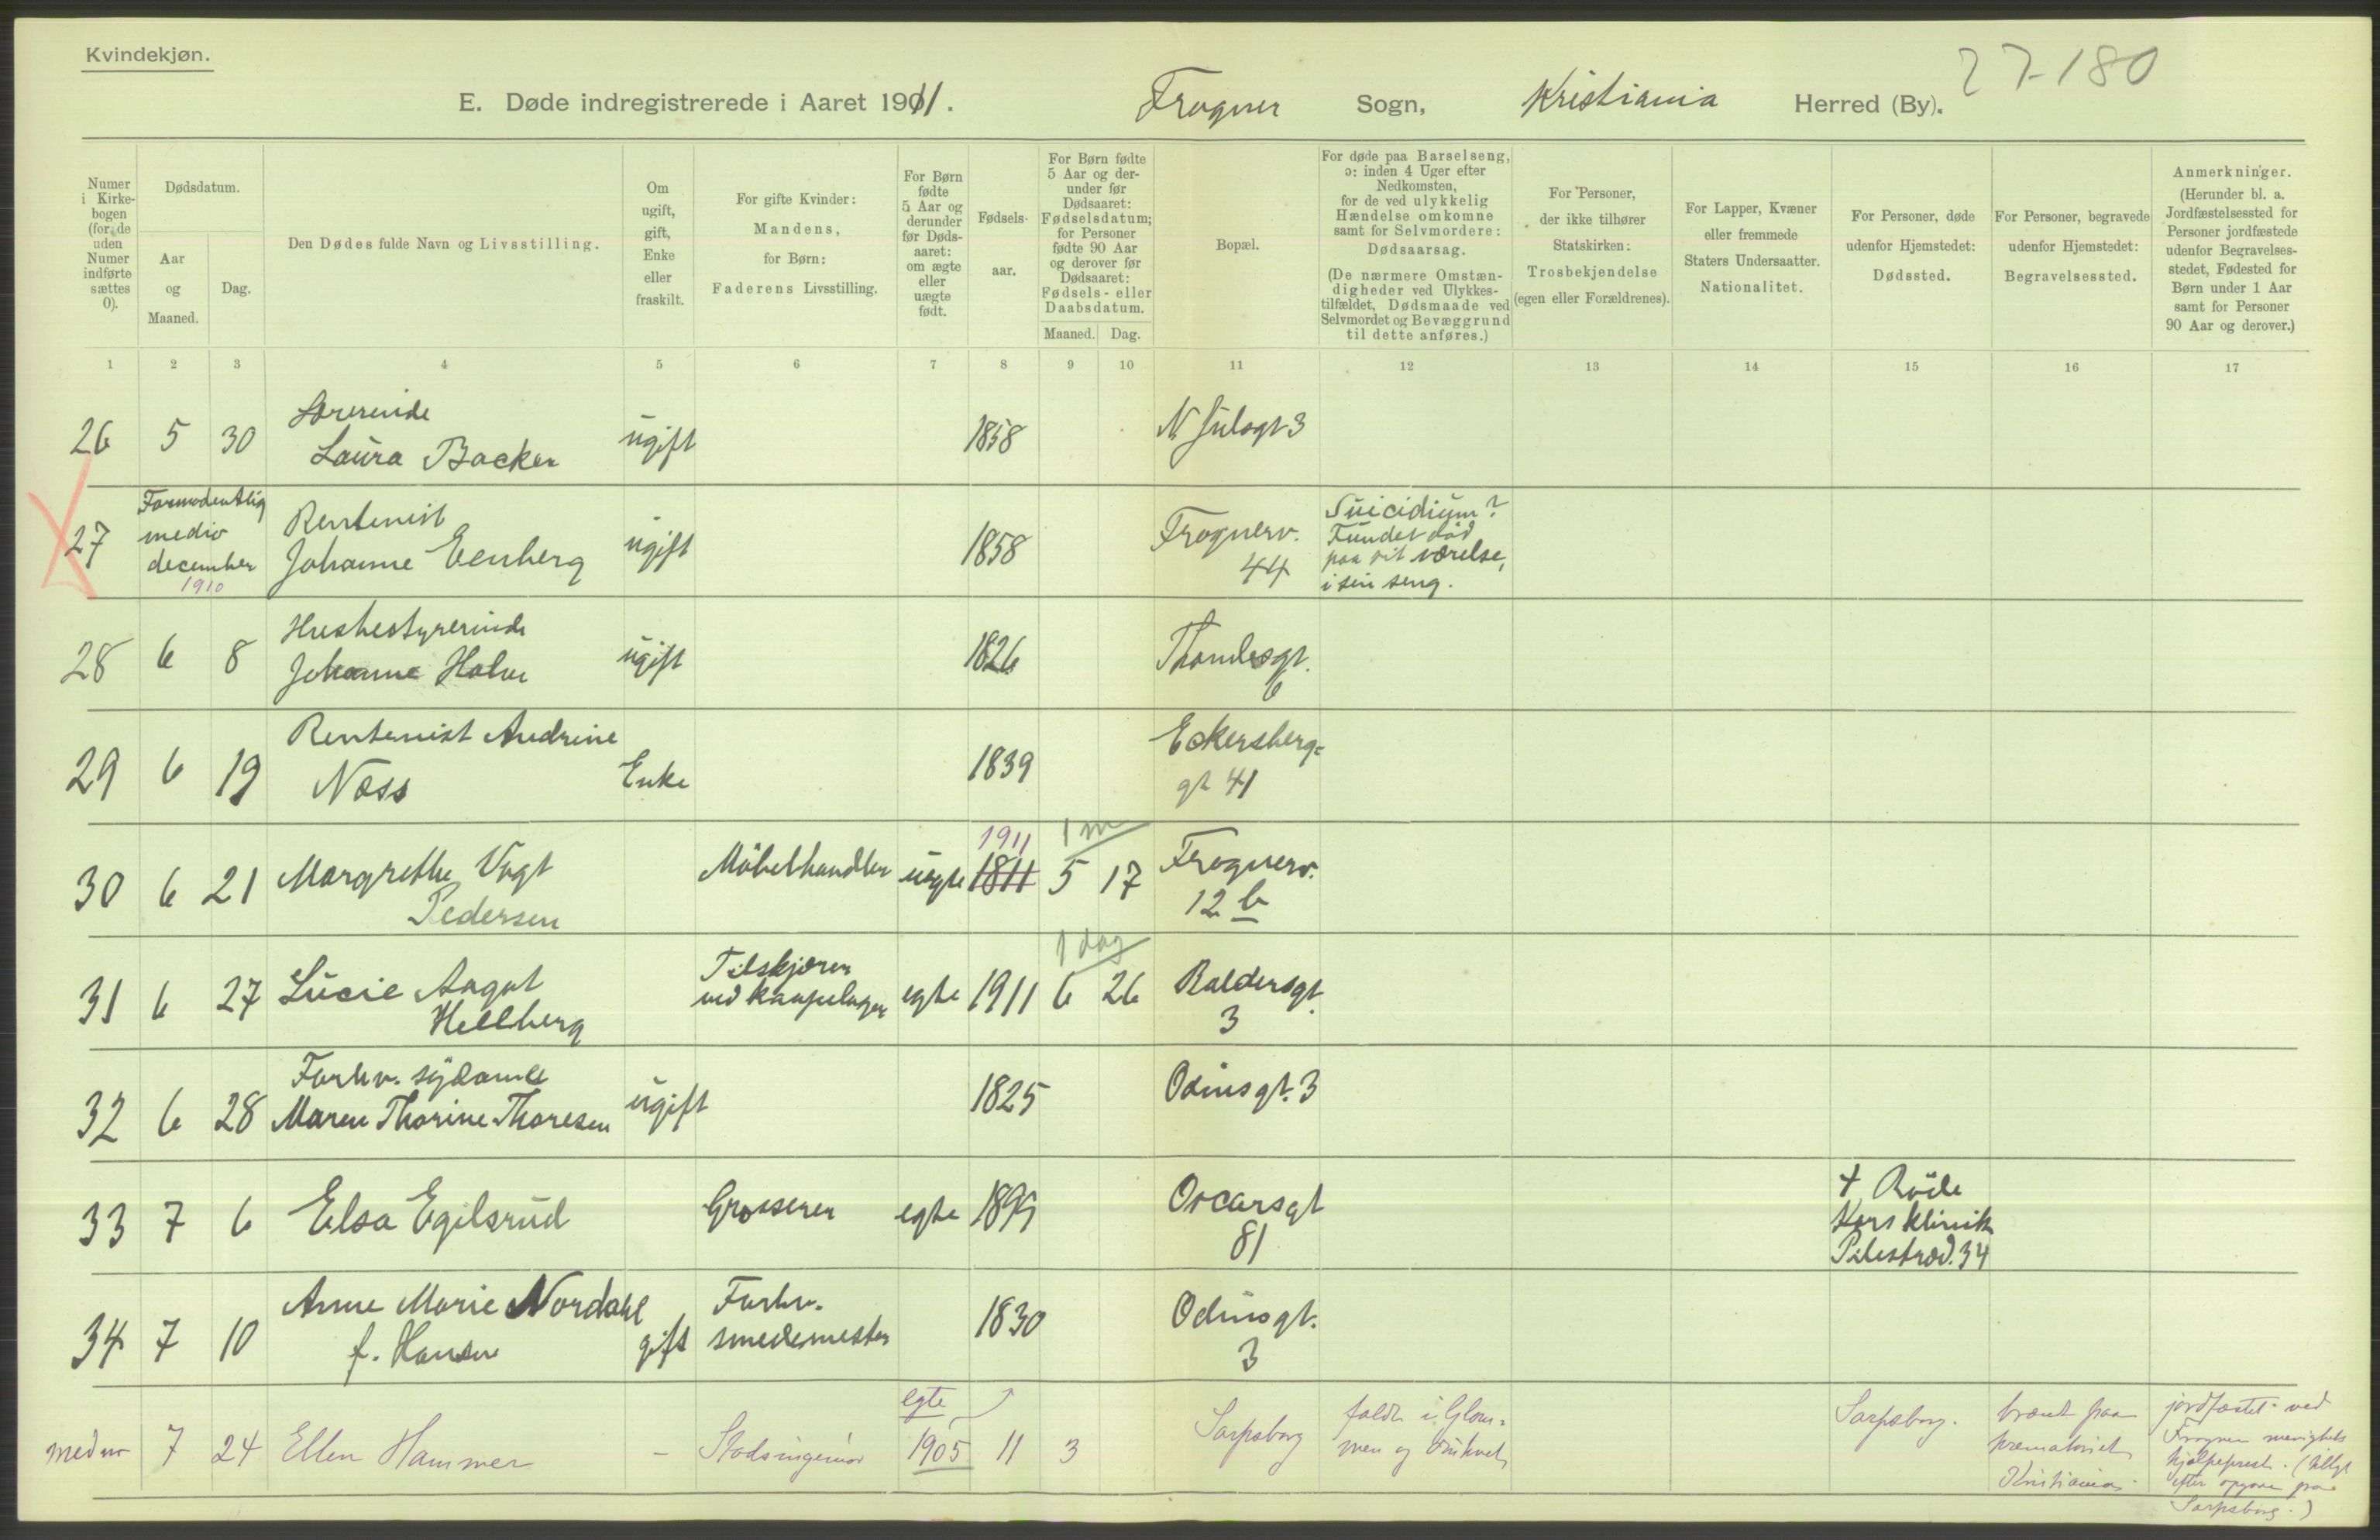 Kvindekjøn.
27-180
E. Døde indregistrerede i Aaret 1911. Frogner Sogn, Kristiania Herred (By).
Numer
i Kirke-
bogen
(for de
uden
Numer
indførte
sættes
0).
Dødsdatum.
Aar
og
Maaned.
Dag.
Den Dødes fulde Navn og Livsstilling.
Om
ugift,
gift,
Enke
eller
fraskilt.
For gifte Kvinder:
Mandens,
for Børn:
Faderens Livsstilling.
For Børn
fødte
5 Aar og
derunder
før Døds-
aaret:
om ægte
eller
uægte
født.
Fødsels-
aar.
For Børn fødte
5 Aar og der-
under før
Dødsaaret:
Fødselsdatum;
for Personer
fødte 90 Aar
og derover før
Dødsaaret:
Fødsels- eller
Daabsdatum.
Maaned. Dag.
Bopæl.
For døde paa Barselseng,
ɔ: inden 4 Uger efter
Nedkomsten,
for de ved ulykkelig
Hændelse omkomne
samt for Selvmordere:
Dødsaarsag.
(De nærmere Omstæn-
digheder ved Ulykkes-
tilfældet, Dødsmaade ved
Selvmordet og Bevæggrund
til dette anføres.)
For Personer,
der ikke tilhører
Statskirken:
Trosbekjendelse
(egen eller Forældrenes).
For Lapper, Kvæner
eller fremmede
Staters Undersaatter.
Nationalitet.
For Personer, døde
udenfor Hjemstedet:
Dødssted.
For Personer, begravede
udenfor Hjemstedet:
Begravelsessted.
Anmerkninger.
(Herunder bl. a.
Jordfæstelsessted for
Personer jordfæstede
udenfor Begravelses-
stedet, Fødested for
Børn under 1 Aar
samt for Personer
90 Aar og derover.)
1 2 3 4 5 6 7 8 9 10 11 12 13 14 15 16 17
Lærerinde
26 5 30 Laura Backer ugift 1858 N Julsgt 3
Formodentlig
medio
december
1910
27 Rentenist
Johanne Eenberg ugift 1858 Frognerv.
44
Suicidium?
Fundet død
paa sit værelse,
i sin seng.
Husbestyrerinde
28 6 8 Johanne Holm ugift 1826 Thomlesgt.
6
Rentenist Andrine
29 6 19 Næss Enke 1839 Eckersberg-
gt 41
1911 1 m
30 6 21 Margrethe Vogt Møbelhandler uegte 1811 5 17 Frognerv.
Pedersen 12 b
1 dag
31 6 27 Lucie Aagot Tilskjærer egte 1911 6 26 Baldersgt.
Hellberg 3
Forhv. sydame
32 6 28 Maren Thorine Thoresen ugift 1825 Odinsgt. 3
33 7 6 Elsa Egilsrud Grosserer egte 1899 Oscarsgt
81
+ Røde
Kors klinik
Pilestræd. 34
34 7 10 Anne Marie Nordahl
f. Hansen gift Forhv.
smedemester 1830 Odinsgt.
3
egte
7 24 Ellen Hammer – Stadsingeniør 1905 11 3 Sarpsborg
faldt i Glom-
men og druknet
Sarpsborg.
brændt paa
krematoriet
Kristiania.
jordfæstet ved
Frogner menigheds
hjælpeprest.
efter opgave fra
Sarpsborg.)